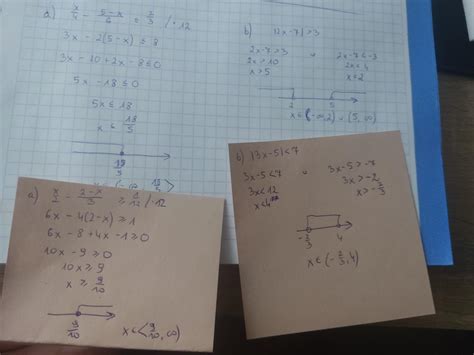 a) x/4 - (5-x)/6 ≤ 2/3 /·12
3x - 2(5-x) ≤ 8
3x - 10 + 2x - 8 ≤ 0
5x - 18 ≤ 0
5x ≤ 18
x ≤ 18/5
18/5
b) |2x-7| > 3
2x-7 > 3 2x-7 < -3
2x > 10 2x < 4
x > 5 x < 2
2 5
x ∈ (-∞, 2) ∪ (5, ∞)
a) x/2 - (2-x)/3 ≥ /·12
6x - 4(2-x) ≥ 1
6x - 8 + 4x - 1 ≥ 0
10x - 9 ≥ 0
10x ≥ 9
x ≥ 9/10
9/10
x ∈ <9/10, ∞)
b) |3x-5| < 7
3x-5 < 7 3x-5 > -7
3x < 12 3x > -2
x < 4 x > -2/3
-2/3 4
x ∈ (-2/3, 4)